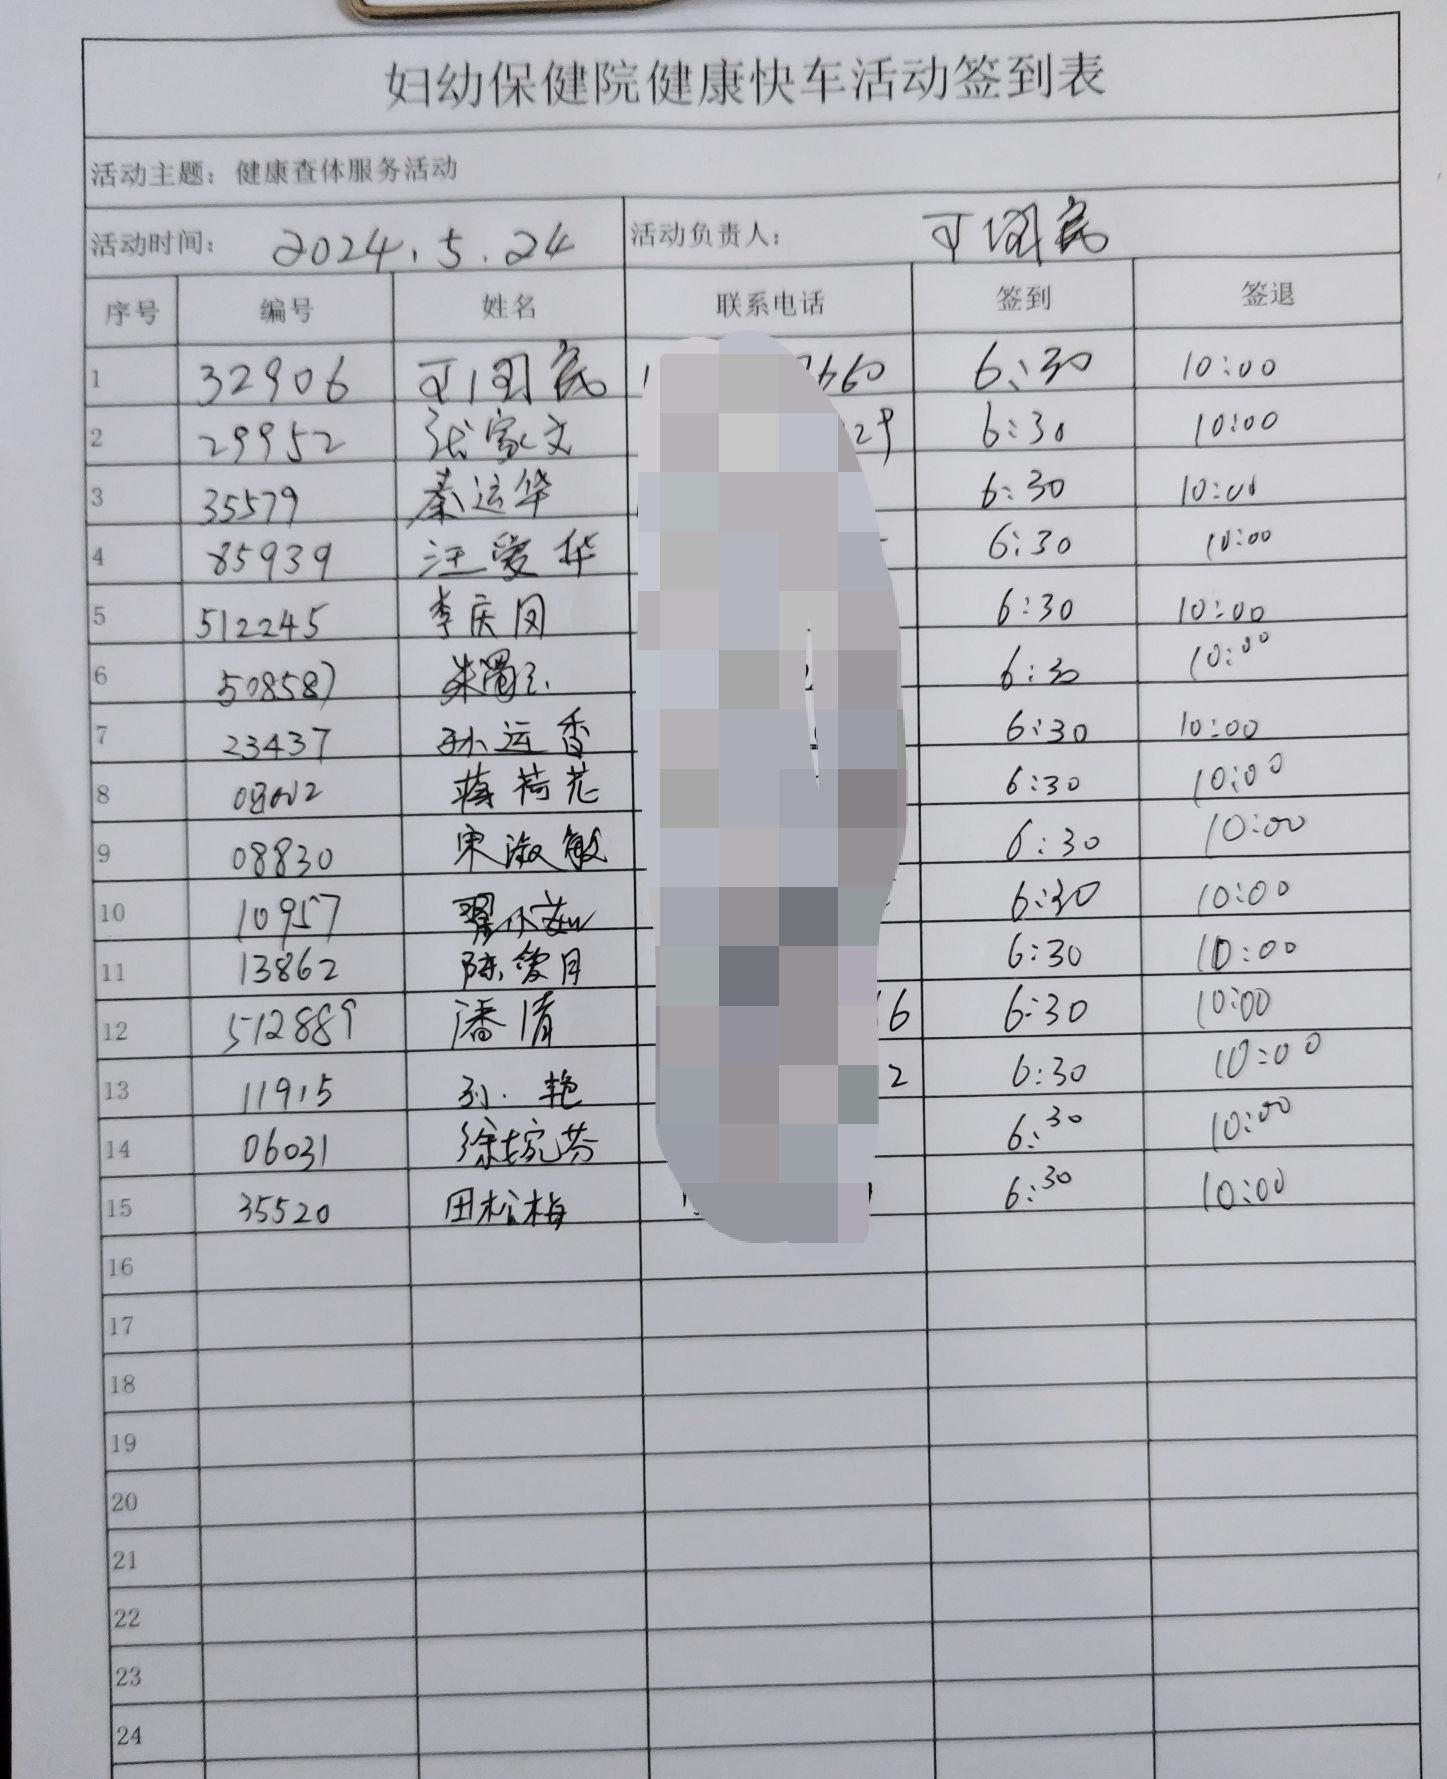 妇幼保健院健康快车活动签到表
活动主题：健康查体服务活动
活动时间： 2024.5.24 活动负责人：
序号 编号 姓名 联系电话 签到 签退
1 32906 6:30 10:00
2 29952 张家文 6:30 10:00
3 35579 秦运华 6:30 10:00
4 85939 汪爱华 6:30 10:00
5 512245 李庆凤 6:30 10:00
6 508587 6:30 10:00
7 23437 孙运香 6:30 10:00
8 蒋荷花 6:30 10:00
9 08830 宋淑敏 6:30 10:00
10 10957 6:30 10:00
11 13862 陈爱月 6:30 10:00
12 512889 潘清 16 6:30 10:00
13 11915 孙艳 2 6:30 10:00
14 06031 徐婉芬 6:30 10:00
15 35520 田松梅 6:30 10:00
16
17
18
19
20
21
22
23
24